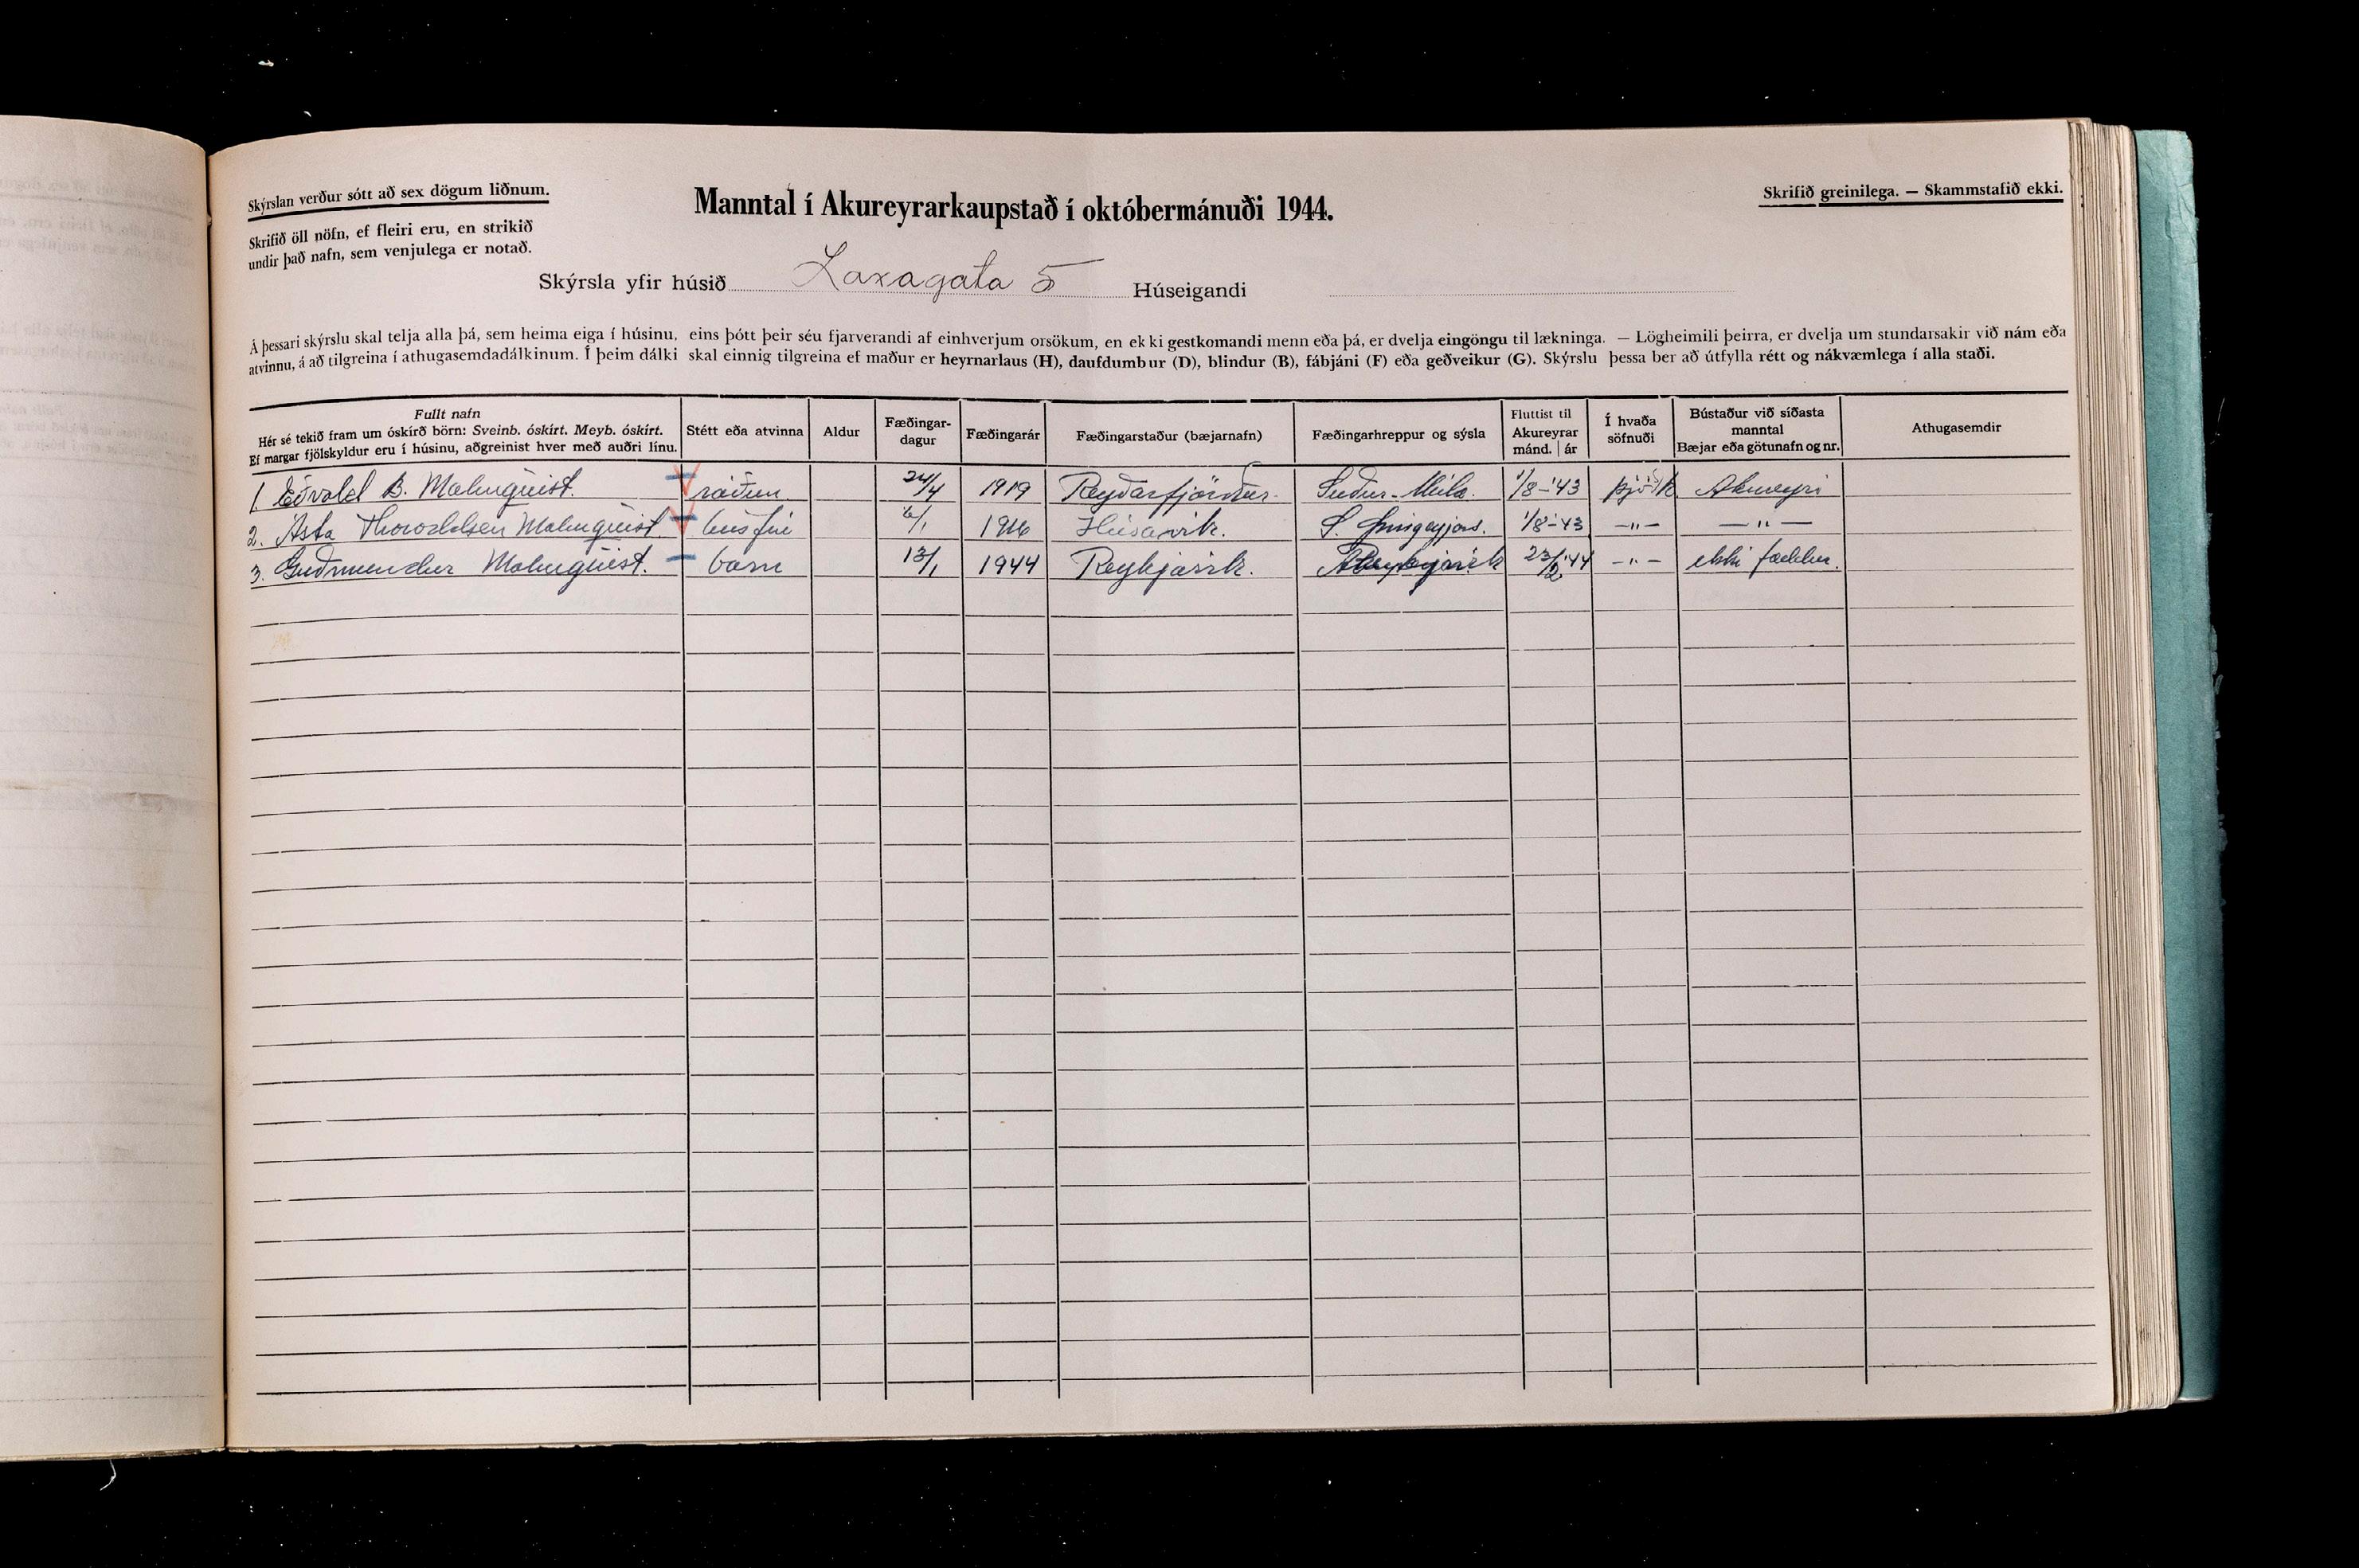 Skýrslan verður sótt að sex dögum liðnum.
Skrifið öll nöfn, ef fleiri eru, en strikið
undir það nafn, sem venjulega er notað.
Manntal í Akureyrarkaupstað í októbermánuði 1944.
Skrifið greinilega. — Skammstafið ekki.
Skýrsla yfir húsið Laxagata 5 Húseigandi
Á þessari skýrslu skal telja alla þá, sem heima eiga í húsinu, eins þótt þeir séu fjarverandi af einhverjum orsökum, en ekki gestkomandi menn eða þá, er dvelja eingöngu til lækninga. — Lögheimili þeirra, er dvelja um stundarsakir við nám eða
atvinnu, á að tilgreina í athugasemdadálkinum. Í þeim dálki skal einnig tilgreina ef maður er heyrnarlaus (H), daufdumbur (D), blindur (B), fábjáni (F) eða geðveikur (G). Skýrslu þessa ber að útfylla rétt og nákvæmlega í alla staði.
Fullt nafn
Hér sé tekið fram um óskírð börn: Sveinb. óskírt. Meyb. óskírt.
Ef margar fjölskyldur eru í húsinu, aðgreinist hver með auðri línu.
Stétt eða atvinna
Aldur
Fæðingar-
dagur
Fæðingarár
Fæðingarstaður (bæjarnafn)
Fæðingarhreppur og sýsla
Fluttist til
Akureyrar
mánd. | ár
Í hvaða
söfnuði
Bústaður við síðasta
manntal
Bæjar eða götunafn og nr.
Athugasemdir
1. Eðvald B. Malmquist. ráðun. 24/4 1919 Reyðarfjörður. Suður-Múla. 1/8-'43 þjóðk. Akureyri
2. Ásta Thoroddsen Malmquist. húsfrú /1 1916 Húsavík. S. Þingeyjars. 1/8-'43 —"— —"—
3. Guðmundur Malmquist. barn 13/1 1944 Reykjavík. Reykjavík 23/2'44 —"— ekki fæddur.